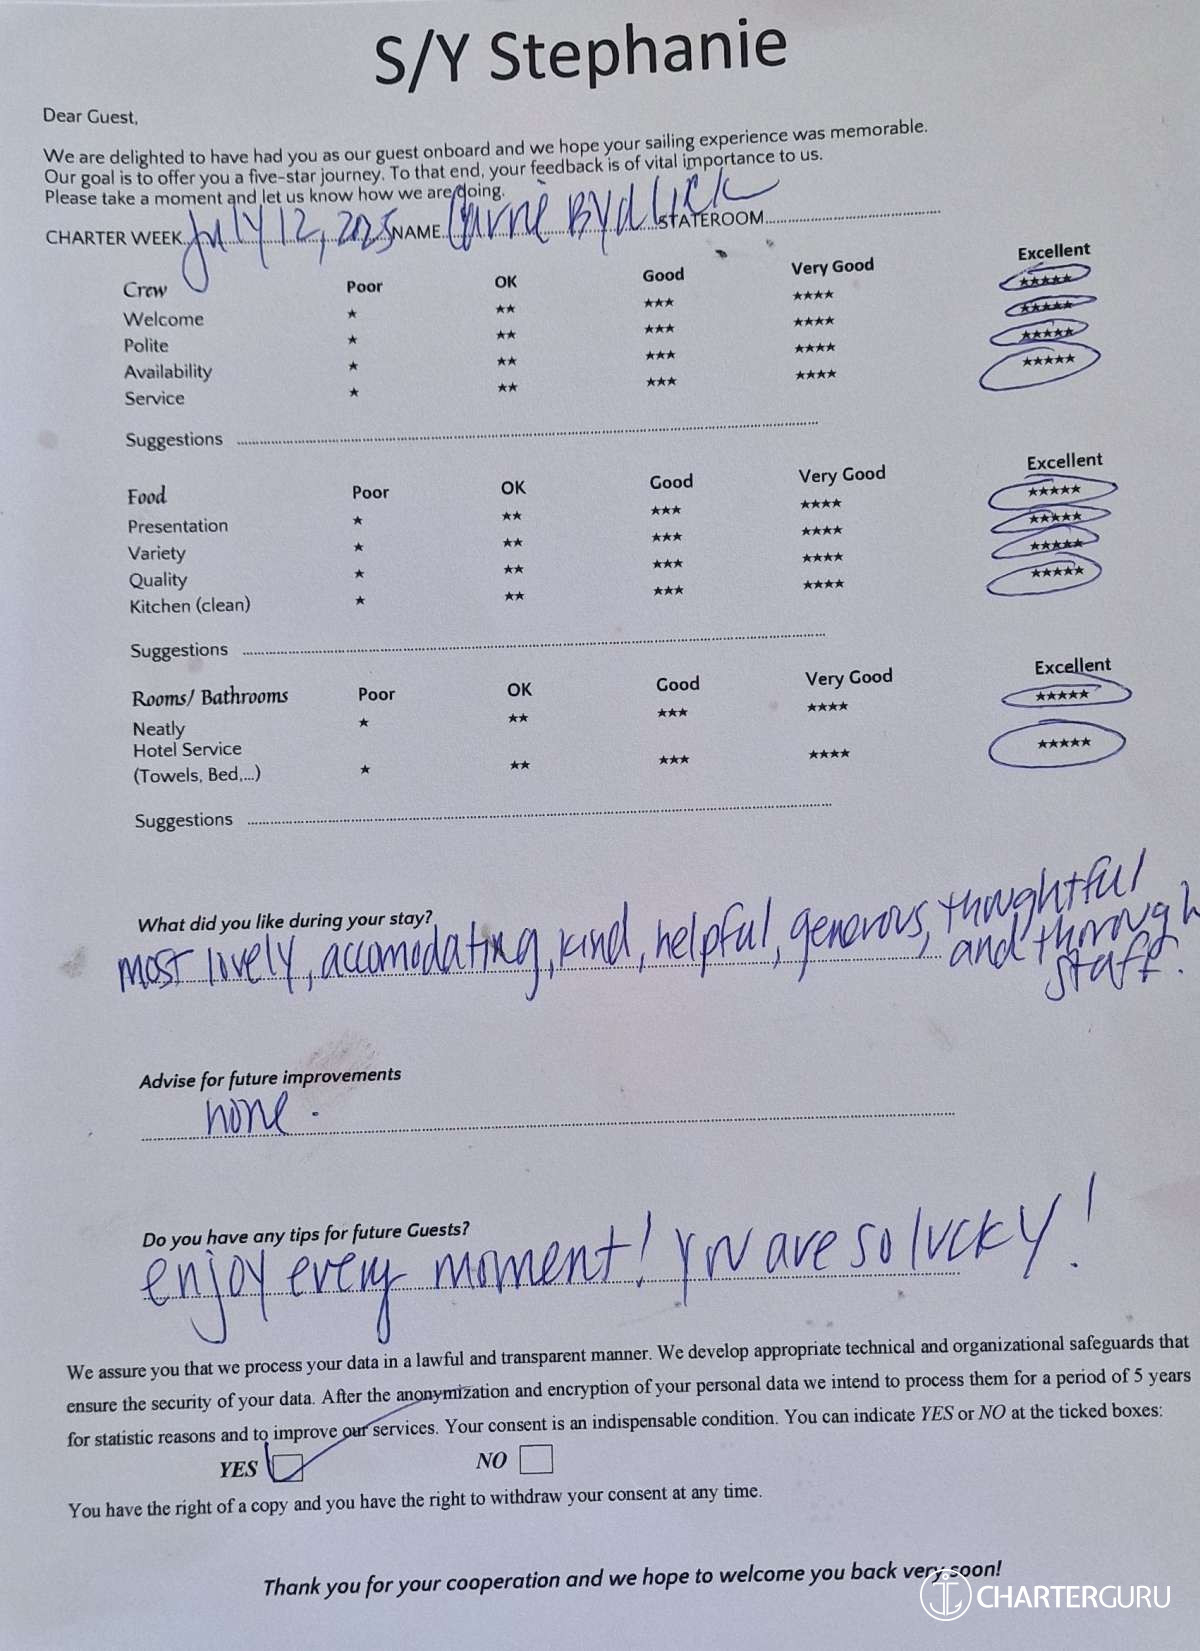 S/Y Stephanie
Dear Guest,
We are delighted to have had you as our guest onboard and we hope your sailing experience was memorable.
Our goal is to offer you a five-star journey. To that end, your feedback is of vital importance to us.
Please take a moment and let us know how we are doing.
CHARTER WEEK July 12, 2025 NAME STATEROOM
Crew Poor OK Good Very Good Excellent
Welcome ★ ★★ ★★★ ★★★★ ★★★★★
Polite ★ ★★ ★★★ ★★★★ ★★★★★
Availability ★ ★★ ★★★ ★★★★ ★★★★★
Service ★ ★★ ★★★ ★★★★ ★★★★★
Suggestions
Food Poor OK Good Very Good Excellent
Presentation ★ ★★ ★★★ ★★★★ ★★★★★
Variety ★ ★★ ★★★ ★★★★ ★★★★★
Quality ★ ★★ ★★★ ★★★★ ★★★★★
Kitchen (clean) ★ ★★ ★★★ ★★★★ ★★★★★
Suggestions
Rooms/ Bathrooms Poor OK Good Very Good Excellent
Neatly ★ ★★ ★★★ ★★★★ ★★★★★
Hotel Service
(Towels, Bed,...) ★ ★★ ★★★ ★★★★ ★★★★★
Suggestions
What did you like during your stay?
most lovely, accomodating, kind, helpful, generous, thoughtful
and thorough
staff.
Advise for future improvements
none.
Do you have any tips for future Guests?
enjoy every moment! You are so lucky!
We assure you that we process your data in a lawful and transparent manner. We develop appropriate technical and organizational safeguards that
ensure the security of your data. After the anonymization and encryption of your personal data we intend to process them for a period of 5 years
for statistic reasons and to improve our services. Your consent is an indispensable condition. You can indicate YES or NO at the ticked boxes:
YES NO
You have the right of a copy and you have the right to withdraw your consent at any time.
Thank you for your cooperation and we hope to welcome you back very soon!
CHARTERGURU